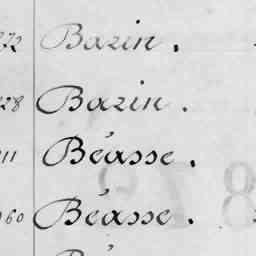 272 Bazin.
228 Bazin.
11 Béasse.
60 Béasse.